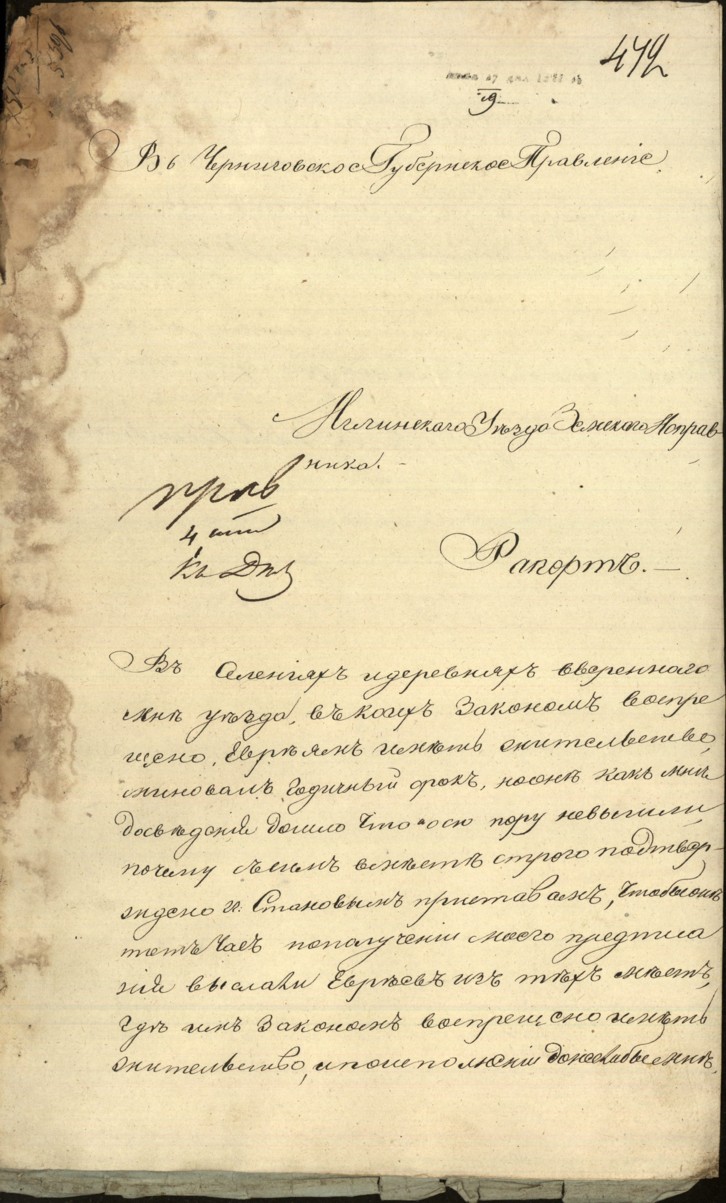 472
Въ Черниговское Губернское Правленіе,
Мглинскаго Уезда Земскаго Исправ-
ника.
Рапортъ.
Въ Селеніяхъ и деревняхъ ввереннаго
мне уезда, въ коихъ Закономъ воспре
щено, Евреямъ иметь жительство,
миновалъ годичный срокъ, но оне какъ мне
до сведенія дошло что по сю пору невышли,
почему съ симъ вместе строго подтвер-
ждено гг. Становымъ приставамъ, чтобы оне
тотъ часъ по полученіи моего предписа
нія выслали Евреевъ изъ техъ местъ,
где имъ Закономъ воспрещено иметь
жительство, и по исполненіи донесли бы мне,